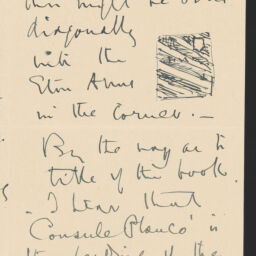 this might be done
diagonally
with the
Eton Arms
in the Corner. —
By the way as to
title of the book.
I hear that
"Consule Planco" is
the heading of the